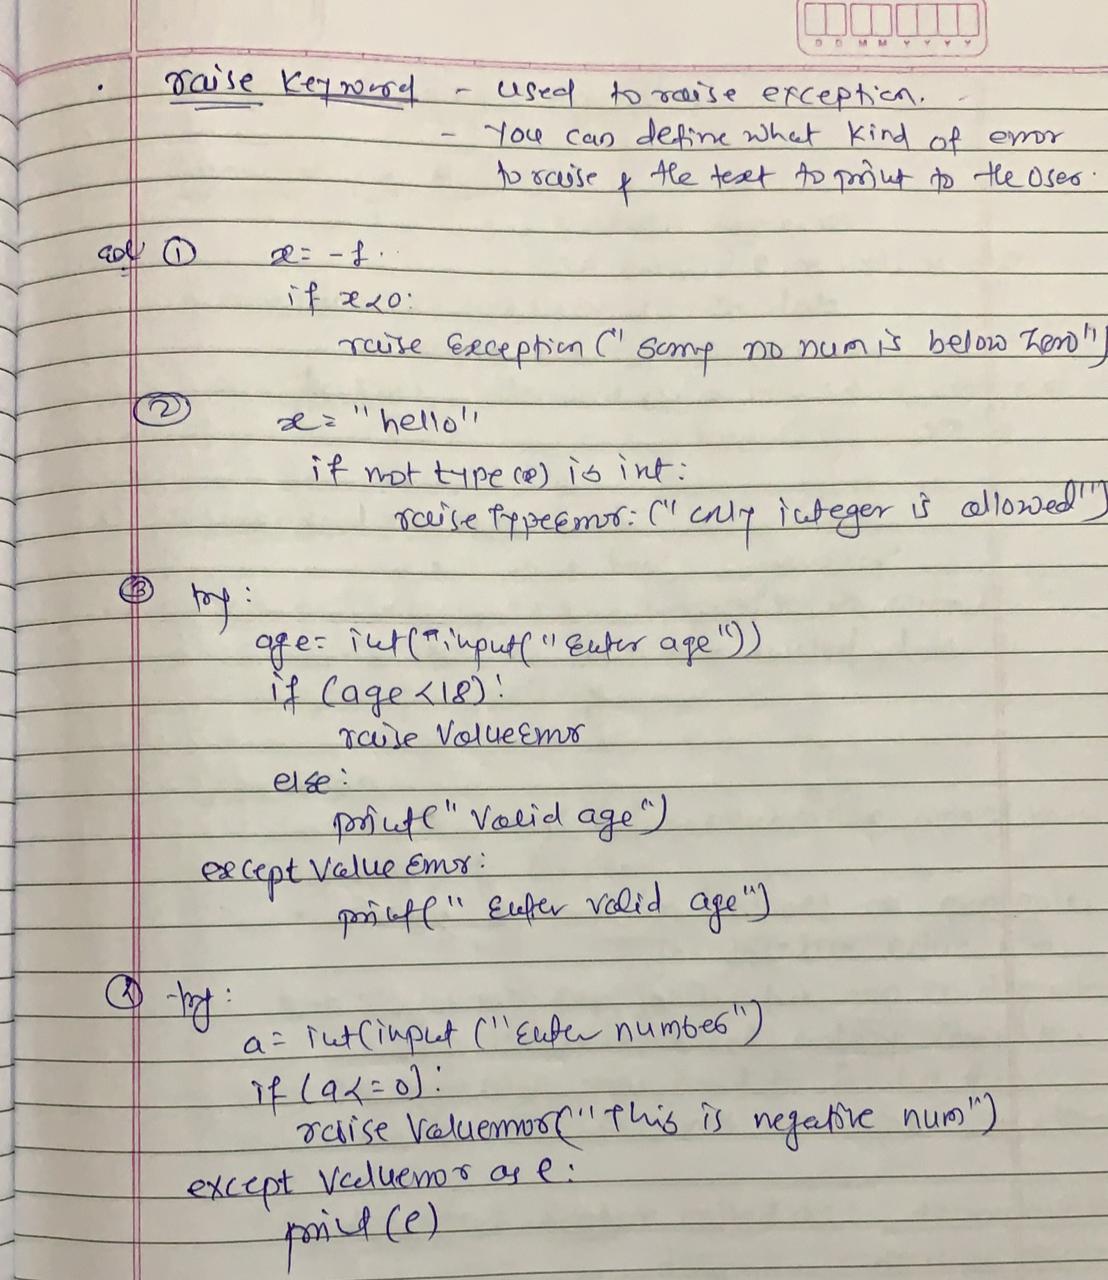 D D M M Y Y Y Y
. raise keyword - used to raise exception.
- You can define what kind of error
to raise & the text to print to the user.
① x= -1.
if x<0:
raise Exception (" Sorry no num is below zero")
② x= "hello"
if not type(x) is int:
raise TypeError: (" only integer is allowed")
③ try:
age= int( input(" Enter age"))
if (age <18):
raise ValueError
else:
print(" Valid age")
except Value Error:
print(" Enter valid age")
try:
a= int(input ("Enter number")
if (a<=0):
raise Valueerror("this is negative num")
except Valueerror as e:
print(e)